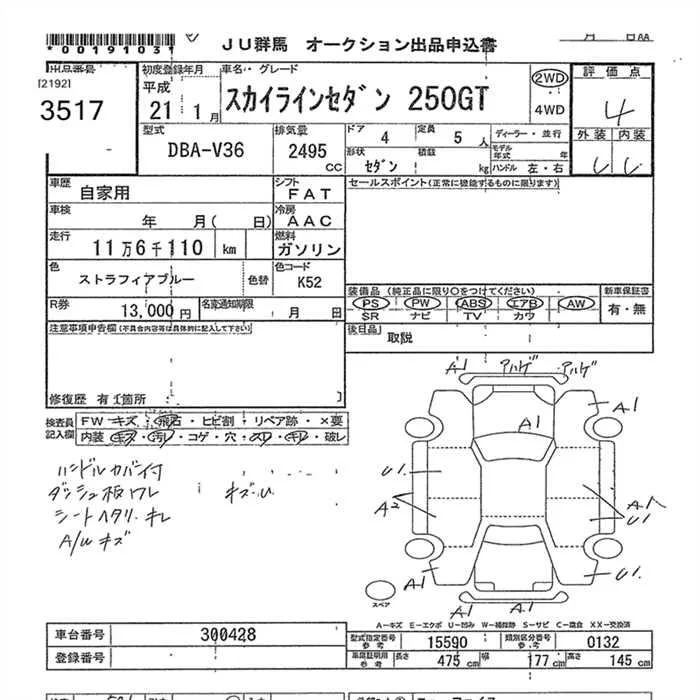 *00191031*
JU群馬 オークション出品申込書
出品番号 初度登録年月 車名・グレード 評価点
[2192]
3517
平成
21 1月
スカイラインセダン 250GT
2WD
4WD
4
外装 内装
型式 排気量 ドア 4 定員 5人 ディーラー・並行
DBA-V36 2495 CC
形状 セダン 積載 kg
モデル年式 年
ハンドル 左・右
車歴 自家用 シフト FAT
セールスポイント(正常に機能するものに限ります)
車検 年 月( 日) 冷房 AAC
走行 11万6千110 km 燃料 ガソリン
色 ストラフィアブルー 色替 色コード K52
装備品(純正品に限り○をつけてください) 新車保証書
PS PW ABS エアB AW 有・無
SR ナビ TV カワ
R券 13,000円 名変通知期限 月 日
後日品 取説
注意事項申告欄(不具合内容等は具体的に記入して下さい)
修復歴 有 1箇所
検査員記入欄
FW キズ・飛石・ヒビ割・リペア跡・×要
内装・キズ・汚レ・コゲ・穴・スレ・キレ・破レ
ハンドルカバー付
ダッシュ板ワレ キズ・U
シートヘタリ・キレ
A/Wキズ
A1 アルゲ アルゲ
A1
A1
U1
A2
U1
A1
A1
U1
スペア
U1 A1
A-キズ E-エクボ U-凹み W-補修跡 S-サビ C-腐食 XX-交換済
車台番号 300428
登録番号
型式指定番号 参考 15590 類別区分番号 参考 0132
車庫証明用 参考 長さ 475cm 幅 177cm 高さ 145cm